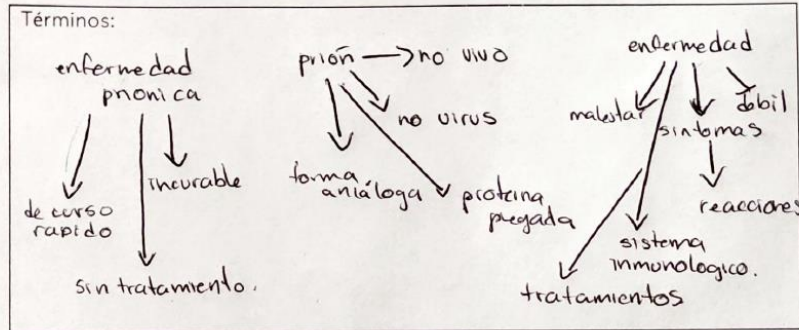 Términos:
enfermedad
prionica
de curso
rapido
incurable
sin tratamiento.
prión no vivo
no virus
forma
aniáloga
proteina
plegada
enfermedad
malestar
debil
sintomas
reacciones
sistema
inmunologico.
tratamientos